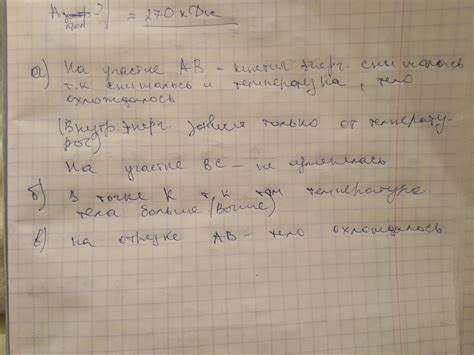 A = 270 кДж
а) На участке АВ - кинетич энерг. снижалась
т.к снижалось и температура, тело
охлождалось
(Внутр. энерг. зависит только от температу-
ры)
На участке ВС - не изменялась
б) В точке К т.к там температура
тела больше (Выше)
в) на отрезке АВ - тело охлождалось